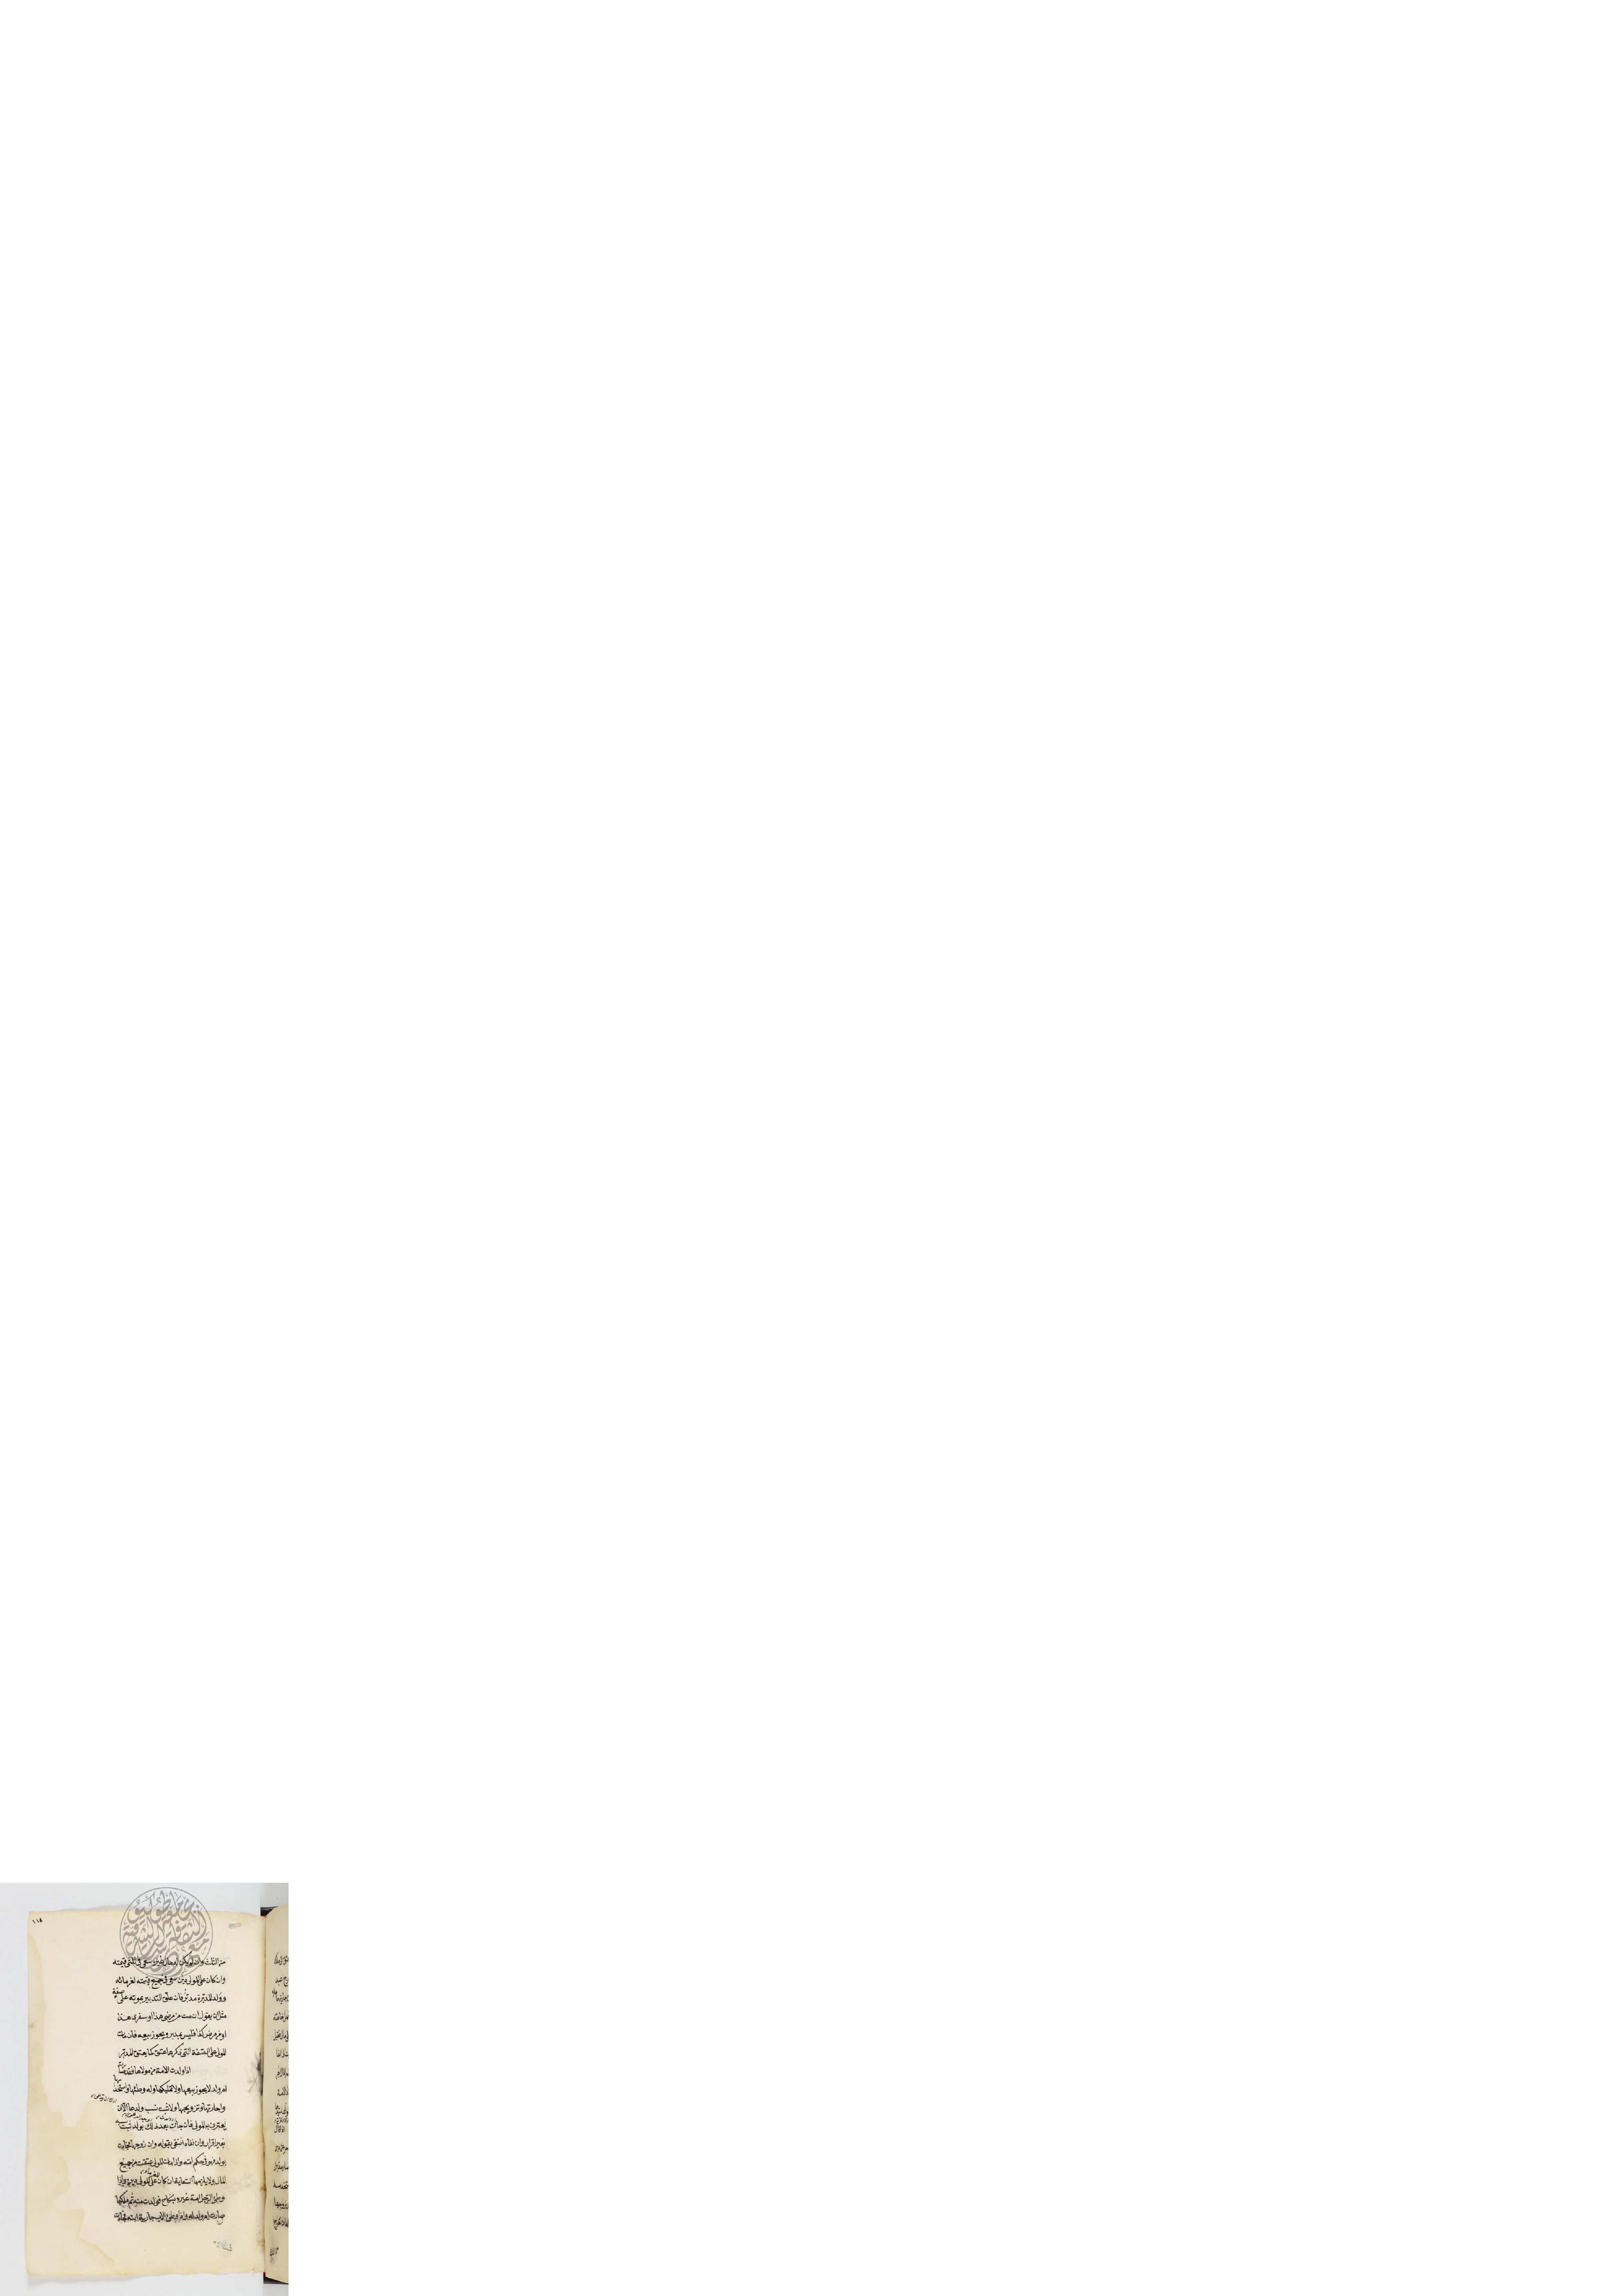 ١١٥
من الثلث وان لم يكن له مال غيره سعى فى ثلثى قيمته
وان كان على المولى دين سعى فى جميع قيمته لغرمائه
وولد المدبرة مدبر فان علق التدبير بموته على صفة
مثل ان يقول ان مت من مرضى هذا او سفرى هذا
او من مرض كذا فليس بمدبر ويجوز بيعه فان مات
المولى على الصفة التى ذكرها عتق كما يعتق المدبر
اذا ولدت الامة من مولاها فقد صارت
ام ولد لا يجوز بيعها ولا تمليكها وله وطئها واستخدامها
واجارتها وتزويجها ولا يثبت نسب ولدها الا ان
يعترف به المولى فان جاءت بعد ذلك بولد ثبت نسبه
بغير اقرار وان نفاه انتفى بقوله وان زوجها فجاءت
بولد فهو فى حكم امه واذا مات المولى عتقت من جميع
المال ولا يلزمها السعاية ان كان على المولى دين واذا
وطئ الرجل امة غيره بنكاح فولدت منه ثم ملكها
صارت ام ولد له واذا وطئ الاب جارية ابنه فجاءت